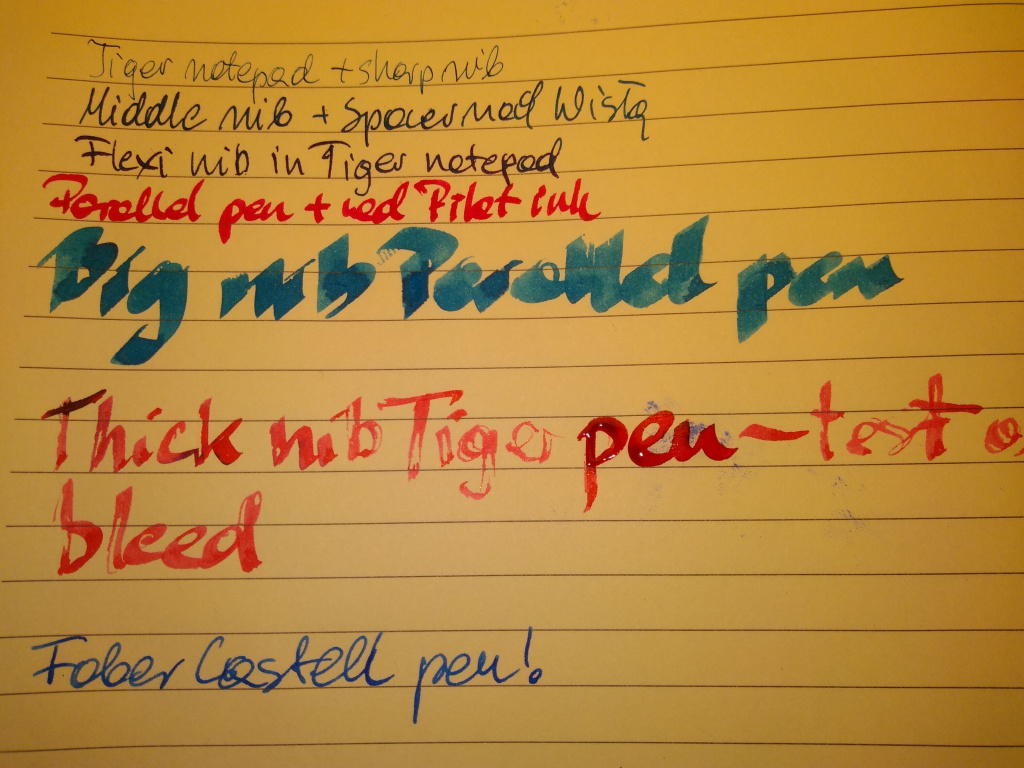 Tiger notepad + sharp nib
Middle nib + Spacer nad Wisłą
Flexi nib in Tiger notepad
Parallel pen + red Pilot ink
Big nib Parallel pen
Thick nib Tiger pen - test o
bleed
Faber Castell pen!